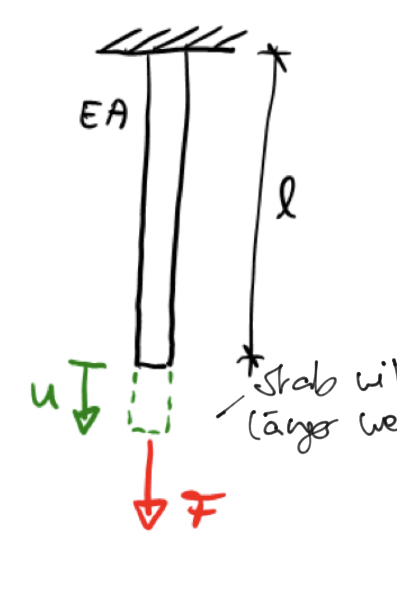 EA
l
Stab wi
länger we
u
F